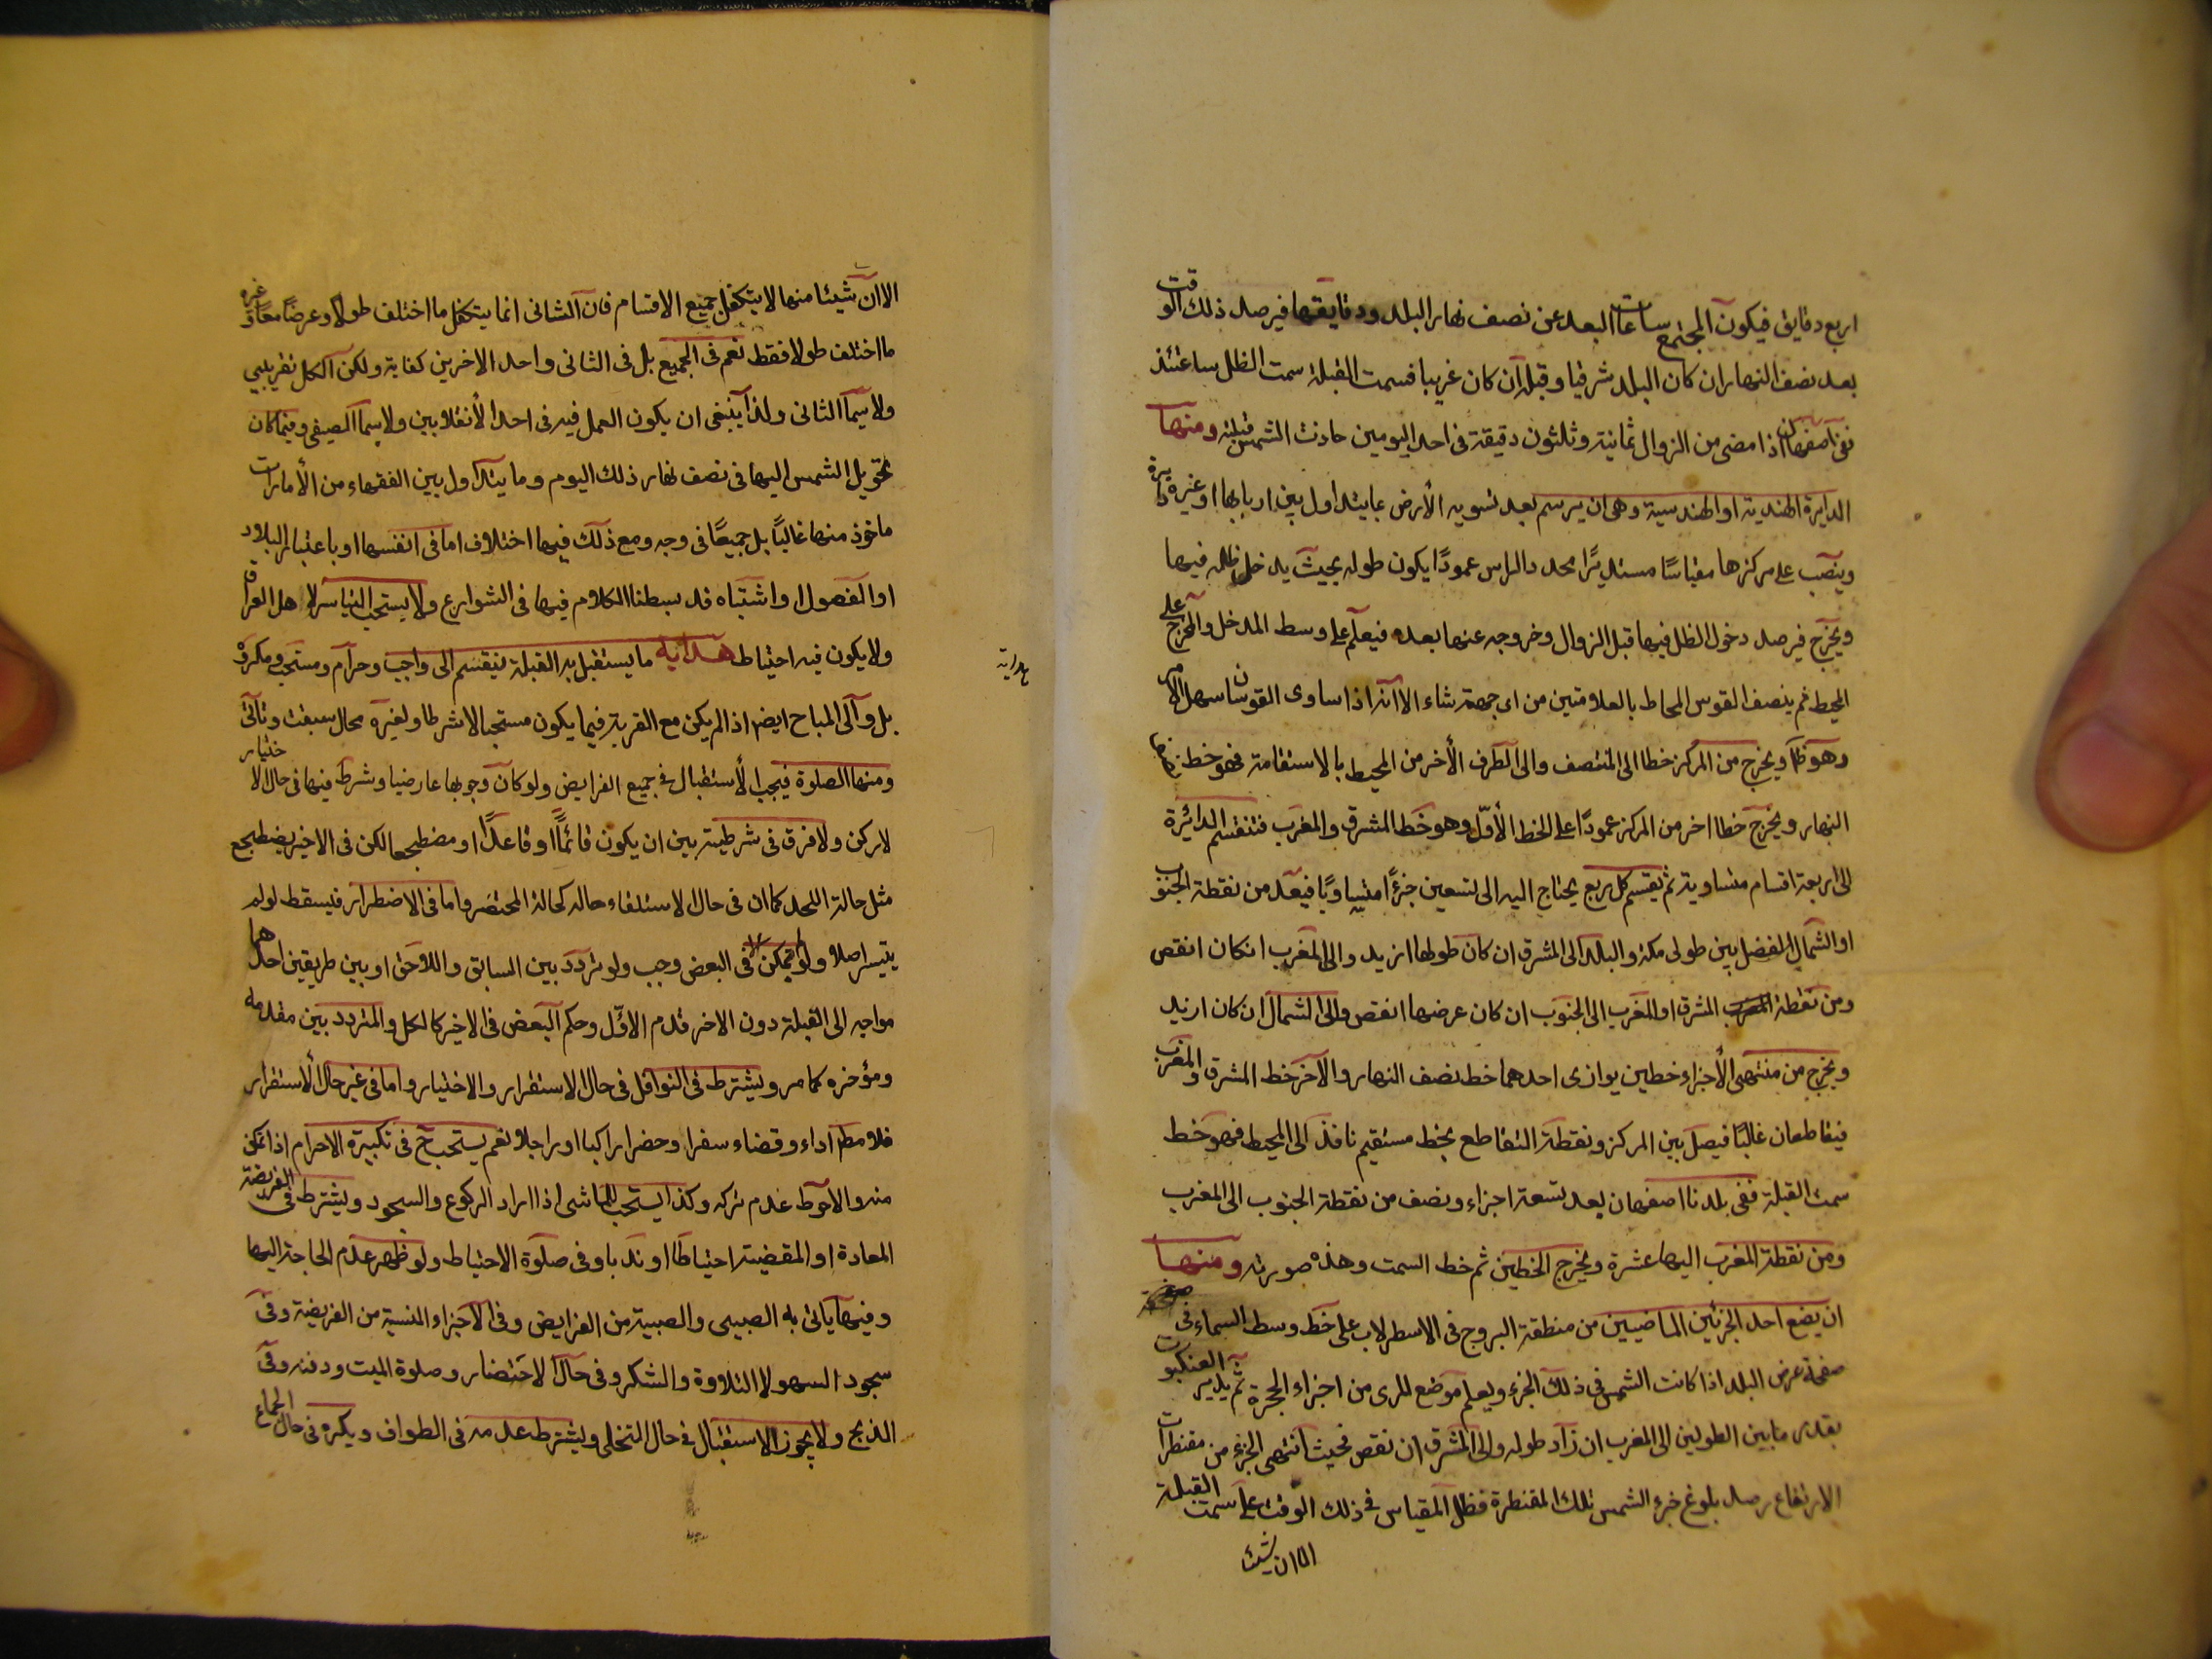 اربع دقايق فيكون المجتمع ساعات البعد عن نصف نهار البلد ودقايقها فيرصد ذلك الوقت
بعد نصف النهار ان كان البلد شرقيا وقبله ان كان غربيا فسمت القبلة سمت الظل ساعتئذ
ففى اصفهان اذا مضى من الزوال ثمانية وثلثون دقيقة فى احد اليومين حاذت الشمس قبلته ومنها
الدايرة الهندية او الهندسية وهى ان يرسم بعد تسويه الأرض بما يتداول بين اربابها او غيره دايرة
وينصب على مركزها مقياسًا مستديرًا محدد الراس عمودًا يكون طوله بحيث يدخل ظله فيها
ويخرج فيرصد دخول الظل فيها قبل الزوال وخروجه عنها بعده فيعلم على وسط المدخل والمخرج على
المحيط ثم ينصف القوس المحاط بالعلامتين من اى جهة شاء الا انه اذا ساوى القوسان سهل الامر
وهو ظ ويخرج من المركز خطا الى المنتصف والى الطرف الأخر من المحيط بالاستقامة فهو خط نصف
النهار ويخرج خطا اخر من المركز عمودًا على الخط الأوّل وهو خط المشرق والمغرب فتنقسم الدائرة
الى اربعة اقسام متساوية ثم يقسم كل ربع يحتاج اليه الى تسعين جزءًا متساويًا فيعد من نقطة الجنوب
او الشمال الفضل بين طولى مكة والبلد الى المشرق ان كان طولها ازيد والى المغرب انكان انقص
ومن نقطة المشرق او المغرب الى الجنوب ان كان عرضها انقص والى الشمال ان كان ازيد
ويخرج من منتهى الأجزاء خطين يوازى احدهما خط نصف النهار والآخر خط المشرق والمغرب
فيقاطعان غالبًا فيصل بين المركز ونقطة التقاطع بخط مستقيم نافذ الى المحيط فهو خط
سمت القبلة ففى بلدنا اصفهان يعد تسعة اجزاء ونصف من نقطة الجنوب الى المغرب
ومن نقطة المغرب اليها عشرة ويخرج الخطين ثم خط السمت وهذه صورته ومنها
ان يضع احد الجزئين الماضيين من منطقة البروج فى الاسطرلاب على خط وسط السماء فى
صفحة عرض البلد اذا كانت الشمس فى ذلك الجزء ويعلم موضع المرى من اجزاء الحجرة ثم يدير العنكبوت
بقدر ما بين الطولين الى المغرب ان زاد طوله والى المشرق ان نقص فحيث انتهى الجزء من مقنطرات
الارتفاع رصد بلوغ جزء الشمس تلك المقنطرة فظل المقياس فى ذلك الوقت على سمت القبلة
الا ان شيئا
الا ان شيئا منها لا يتكفل جميع الاقسام فان الثانى انما يتكفل ما اختلف طولا وعرضًا معًا وغيره
ما اختلف طولا فقط نعم فى الجميع بل فى الثانى واحد الاخرين كفاية ولكن الكل تقريبي
ولا سيما الثانى ولذا ينبغى ان يكون العمل فيه فى احد الأنقلابين ولا سيما الصيفى وفيما كان
تحويل الشمس اليها فى نصف نهار ذلك اليوم وما يتداول بين الفقهاء من الأمارات
ماخوذ منها غالبًا بل جميعًا فى وجه ومع ذلك فيها اختلاف اما فى انفسها او باعتبار البلاد
او الفصول واشتباه قد بسطنا الكلام فيها فى الشوارع ولا يستحب التياسر لاهل العراق
ولا يكون فيه احتياط هداية ما يستقبل به القبلة ينقسم الى واجب وحرام ومستحب ومكروه
هداية
بل والى المباح ايضا اذا لم يكن مع القربة فيما يكون مستحبا لا شرطا ولغيره محال سبقت وتأتى
ومنها الصلوة فيجب الأستقبال فى جميع الفرايض ولو كان وجوبها عارضيا وشرط فيها فى حال الاختيار
لا ركن ولا فرق فى شرطيته بين ان يكون قائمًا او قاعدًا او مضطجعا لكن فى الاخير يضطجع
مثل حالة اللحد كما ان فى حال الاستلقاء حاله كحالة المحتضر واما فى الاضطرار فيسقط لو لم
يتيسر اصلا ولو تمكن فى البعض وجب ولو تردد بين السابق واللاحق او بين طريقين احدهما
مواجه الى القبلة دون الاخر قدم الاوّل وحكم البعض فى الاخير كالكل والمتردد بين مقدمه
ومؤخره كما مر ويشترط فى النوافل فى حال الاستقرار والاختيار واما فى غير حال الأستقرار
فلا مط اداء وقضاء سفرا وحضرا راكبا او راجلا نعم يستحب ح فى تكبيرة الاحرام اذا تمكن
منه والاحوط عدم تركه وكذا يستحب للماشى اذا اراد الركوع والسجود ويشترط فى الفريضة
المعادة او المقضية احتياطًا او ندبا وفى صلوة الاحتياط ولو ظهر عدم الحاجة اليها
وفيما ياتى به الصبى والصبية من الفرايض وفى الاجزاء المنسية من الفريضة وفى
سجود السهو لا التلاوة والشكر وفى حال الاحتضار وصلوة الميت ودفنه وفى
الذبح ولا يجوز الاستقبال فى حال التخلى ويشترط عدمه فى الطواف ويكره فى حال الجماع